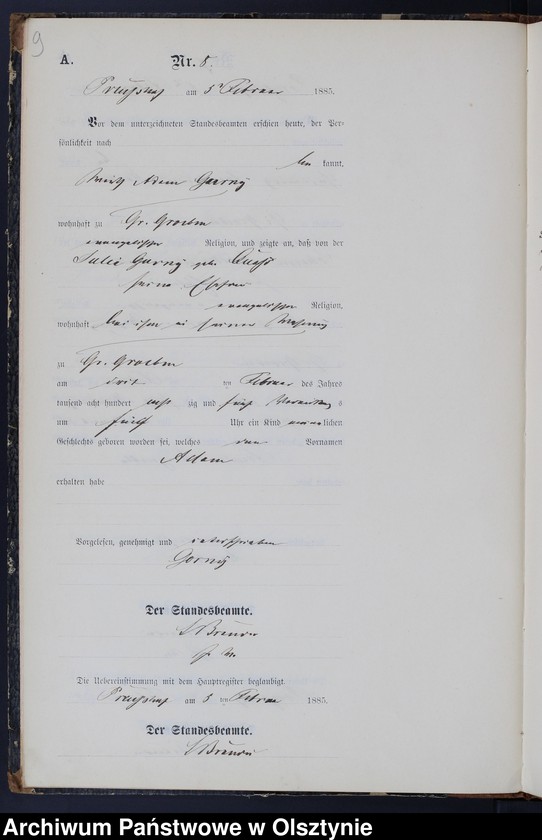 9
A. Nr. 5.
am 5 Februar 1885.
Vor dem unterzeichneten Standesbeamten erschien heute, der Per-
sönlichkeit nach
kannt,
Adam Gorny
wohnhaft zu Gr. Groeben
evangelischer Religion, und zeigte an, daß von der
Julie Gorny geb.
seiner Ehefrau
evangelischer Religion,
wohnhaft bei ihm in seiner Wohnung
zu Gr. Groeben
am drei ten Februar des Jahres
tausend acht hundert acht zig und fünf Vormittags
um fünf Uhr ein Kind männlichen
Geschlechts geboren worden sei, welches den Vornamen
Adam
erhalten habe
Vorgelesen, genehmigt und unterschrieben
Gorny
Der Standesbeamte.
Die Uebereinstimmung mit dem Hauptregister beglaubigt.
am 5 ten Februar 1885.
Der Standesbeamte.
Archiwum Państwowe w Olsztynie